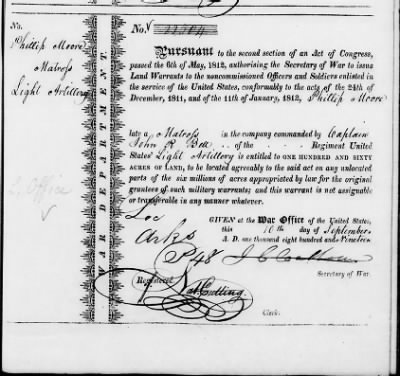 No.
Phillip Moore
Matross
Light Artillery
WAR DEPARTMENT.
No. 22504
Pursuant to the second section of an Act of Congress,
passed the 6th of May, 1812, authorising the Secretary of War to issue
Land Warrants to the noncommissioned Officers and Soldiers enlisted in
the service of the United States, conformably to the acts of the 24th of
December, 1811, and of the 11th of January, 1812, Phillip Moore
late a Matross in the company commanded by Captain
John R. Bell of the Regiment United
States Light Artillery is entitled to ONE HUNDRED AND SIXTY
ACRES OF LAND, to be located agreeably to the said act on any unlocated
parts of the six millions of acres appropriated by law for the original
grantees of such military warrants; and this warrant is not assignable
or transferable in any manner whatever.
Office
Loc
GIVEN at the War Office of the United States,
Arks
this 10th day of September
A. D. one thousand eight hundred and Nineteen
P 48
J C Calhoun
Secretary of War.
Registered
Nat Cutting
Clerk.